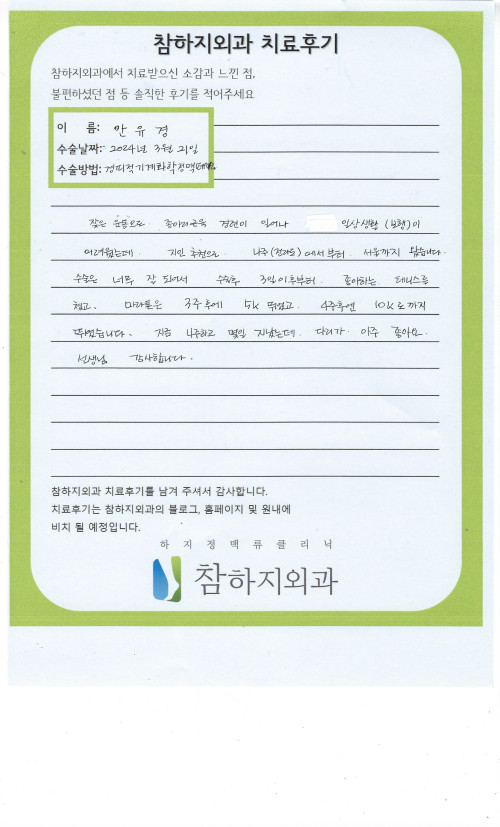 참하지외과 치료후기
참하지외과에서 치료받으신 소감과 느낀 점,
불편하셨던 점 등 솔직한 후기를 적어주세요
이 름: 안유경
수술날짜: 2024년 3월 21일
수술방법: 경피적기계화학정맥폐색
잦은 운동으로 종아리근육 경련이 일어나 일상생활 (보행)이
어려웠는데. 지인 추천으로 나주(전라도)에서부터 서울까지 왔습니다.
수술은 너무 잘 되어서 수술후 3일이후부터. 좋아하는 테니스를
쳤고. 마라톤은 3주후에 5k 뛰었고. 4주후엔 10k로까지
뛰었습니다. 지금 나주하고 몇일 지났는데. 다리가 아주 좋아요.
선생님 감사합니다.
참하지외과 치료후기를 남겨 주셔서 감사합니다.
치료후기는 참하지외과의 블로그, 홈페이지 및 원내에
비치 될 예정입니다.
하지정맥류클리닉
참하지외과